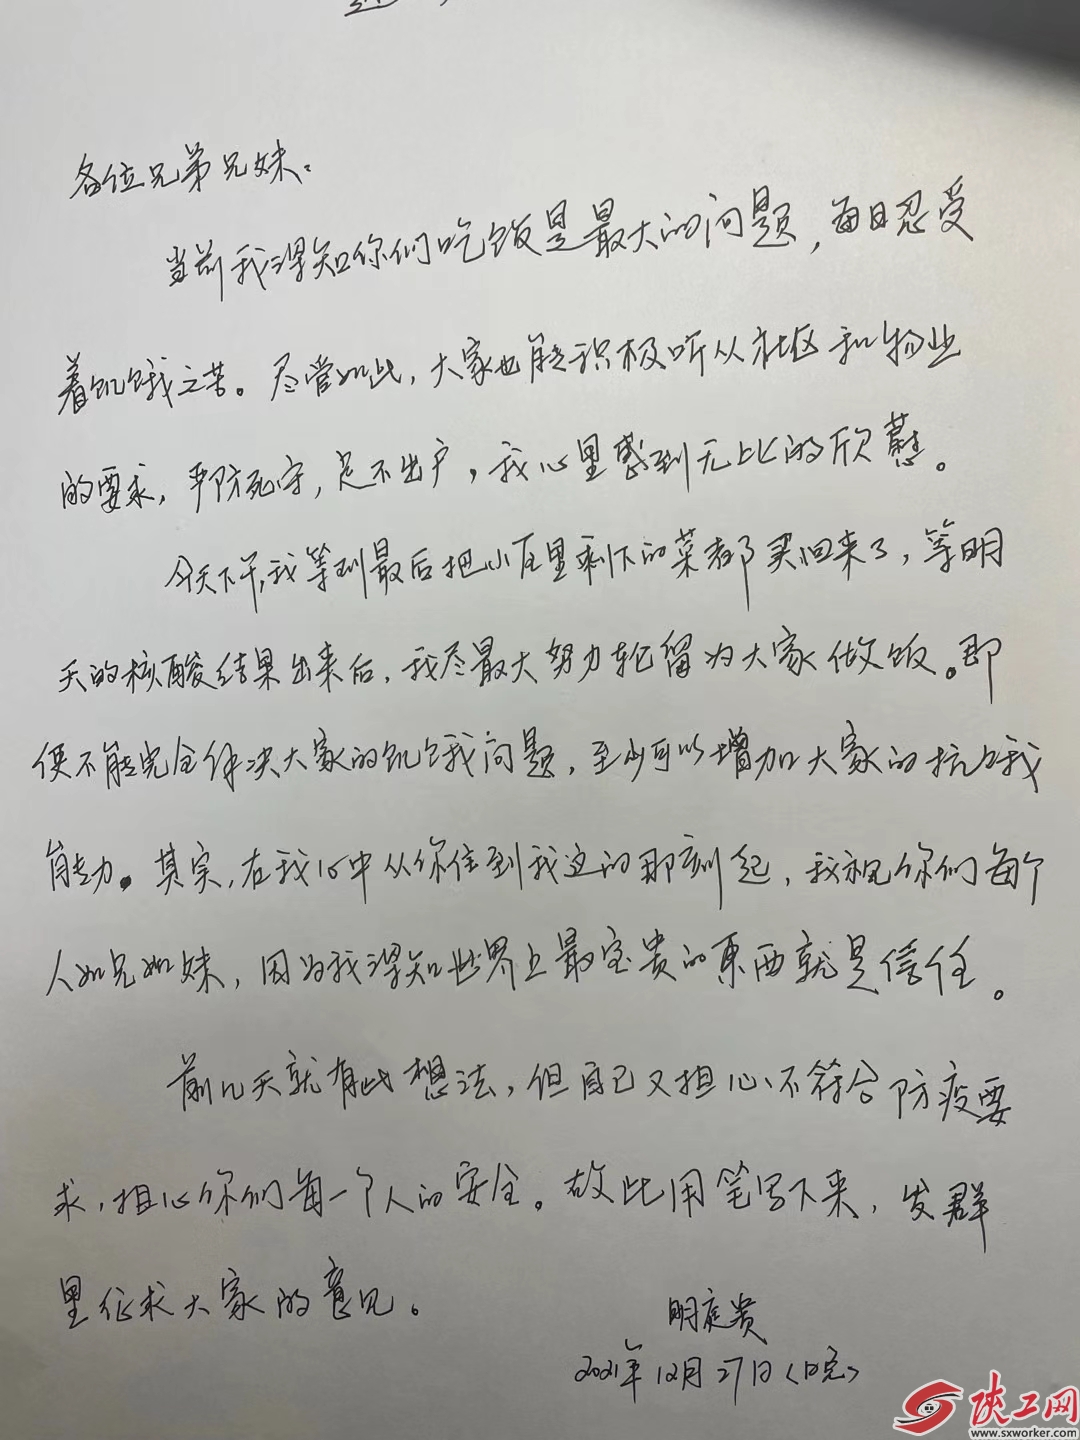 各位兄弟兄妹：
当前我得知你们吃饭是最大的问题，每日忍受
着饥饿之苦。尽管如此，大家也能积极听从社区和物业
的要求，严防死守，足不出户，我心里感到无比的欣慰。
今天下午，我等到最后把小区里剩下的菜都买回来了，等明
天的核酸结果出来后，我尽最大努力轮留为大家做饭。即
便不能完全解决大家的饥饿问题，至少可以增加大家的抗饿
能力。其实，在我心中从你住到我这的那刻起，我视你们每个
人如兄如妹，因为我得知世界上最宝贵的東西就是信任。
前几天就有此想法，但自己又担心不符合防疫要
求，担心你们每一个人的安全。故此用笔写下来，发群
里征求大家的意见。
明庭贵
2021年12月27日（晚）
陕工网
www.sxworker.com